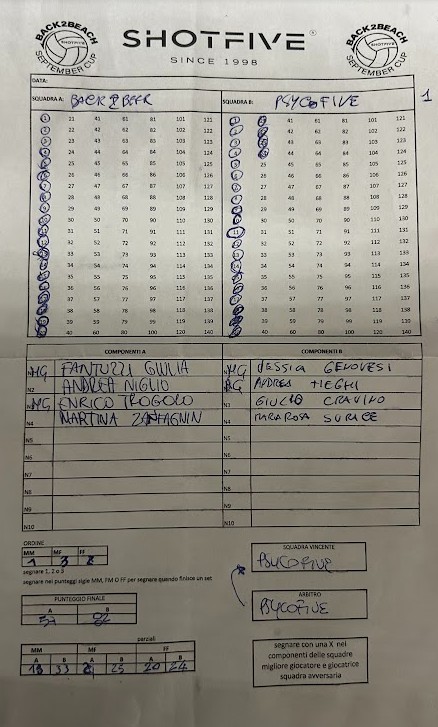 BACK2BEACH
SEPTEMBER CUP
SHOTFIVE®
SINCE 1998
BACK2BEACH
SEPTEMBER CUP
DATA:
SQUADRA A: BACK 2 BEER SQUADRA B: PSYCOFIVE
1
1 21 41 61 81 101 121 1 21 41 61 81 101 121
2 22 42 62 82 102 122 2 22 42 62 82 102 122
3 23 43 63 83 103 123 3 23 43 63 83 103 123
4 24 44 64 84 104 124 4 24 44 64 84 104 124
5 25 45 65 85 105 125 5 25 45 65 85 105 125
6 26 46 66 86 106 126 6 26 46 66 86 106 126
7 27 47 67 87 107 127 7 27 47 67 87 107 127
8 28 48 68 88 108 128 8 28 48 68 88 108 128
9 29 49 69 89 109 129 9 29 49 69 89 109 129
10 30 50 70 90 110 130 10 30 50 70 90 110 130
11 31 51 71 91 111 131 11 31 51 71 91 111 131
12 32 52 72 92 112 132 12 32 52 72 92 112 132
13 33 53 73 93 113 133 13 33 53 73 93 113 133
14 34 54 74 94 114 134 14 34 54 74 94 114 134
15 35 55 75 95 115 135 15 35 55 75 95 115 135
16 36 56 76 96 116 136 16 36 56 76 96 116 136
17 37 57 77 97 117 137 17 37 57 77 97 117 137
18 38 58 78 98 118 138 18 38 58 78 98 118 138
19 39 59 79 99 119 139 19 39 59 79 99 119 139
20 40 60 80 100 120 140 20 40 60 80 100 120 140
COMPONENTI A COMPONENTI B
MG FANTUZZI GIULIA MG JESSICA GENOVESI
N2 ANDREA NIGLIO MG ANDREA TIEGHI
MG ENRICO TROGOLO N3 GIULIO CRAVINO
N4 MARTINA ZANFAGNIN N4 MARAROSA SURACE
N5 N5
N6 N6
N7 N7
N8 N8
N9 N9
N10 N10
ORDINE
MM MF FF
1 3 2
segnare 1, 2 o 3
segnare nei punteggi sigle MM, FM O FF per segnare quando finisce un set
SQUADRA VINCENTE
PSYCOFIVE
PUNTEGGIO FINALE
A B
82
ARBITRO
PSYCOFIVE
parziali
MM MF FF
A B A B A B
33 25 20 24
segnare con una X nei
componenti delle squadre
migliore giocatore e giocatrice
squadra avversaria